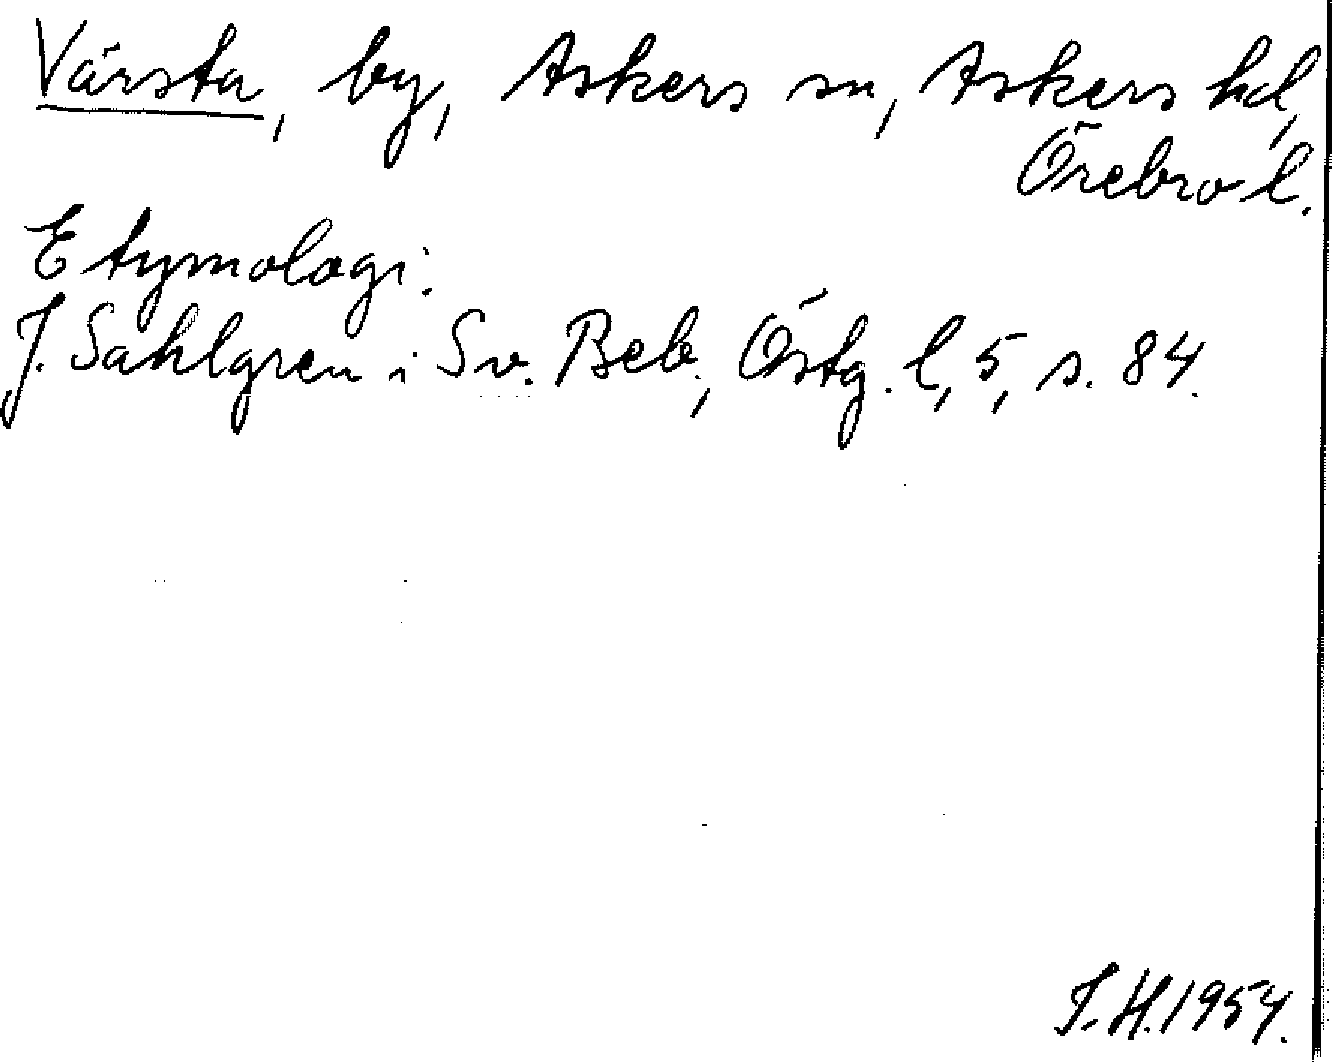 Värsta, by, Askers sn, Askers hd,
Örebro l.
Etymologi:
J. Sahlgren i Sv. Beb., Östg. l, 5, s. 84.
S.H. 1954.